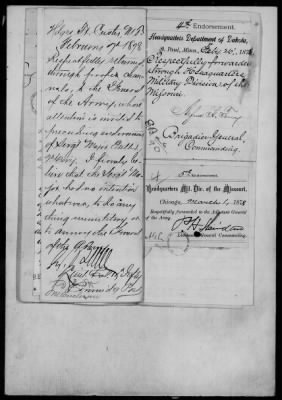 Hdqrs Ft. Custer M.T.
February 17 1878
Respectfully returned
through proper chan-
nels, to the General
of the Army, whose
attention is invited to
preceding endorsement
of Sergt Major
I firmly be-
lieve that the Sergt Ma-
jor had no intention
whatever, to do any
thing unmilitary or
to annoy the General
of the Army
4th Endorsement.
Headquarters Department of Dakota,
St. Paul, Minn., Feby 25, 1878
Respectfully forwarded
through Headquarters
Military Division of the
Missouri.
Alfred H. Terry
Brigadier General,
Commanding.
5th Endorsement
Headquarters Mil. Div. of the Missouri,
Chicago, March 1, 1878
Respectfully forwarded to the Adjutant General
of the Army.
P. H. Sheridan
Lieutenant General Commanding.